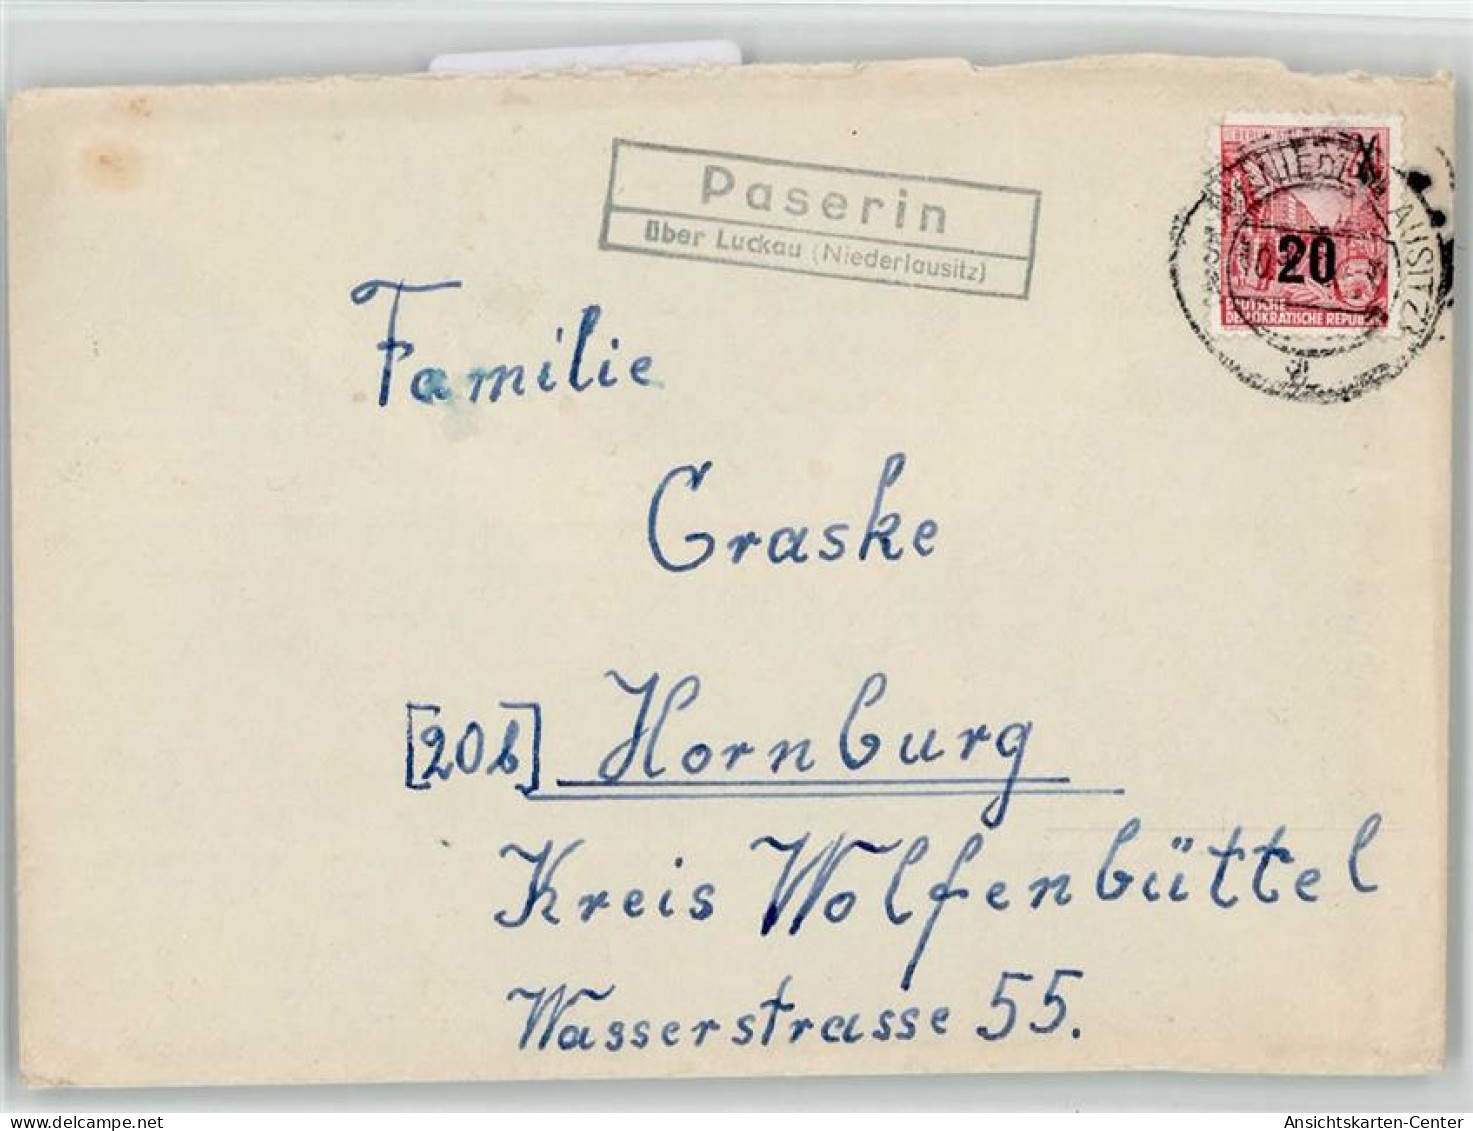 Paserin
über Luckau (Niederlausitz)
20
DEUTSCHE
DEMOKRATISCHE REPUBL
Familie
Graske
[20b] Hornburg
Kreis Wolfenbüttel
Wasserstrasse 55.
Ansichtskarten-Center